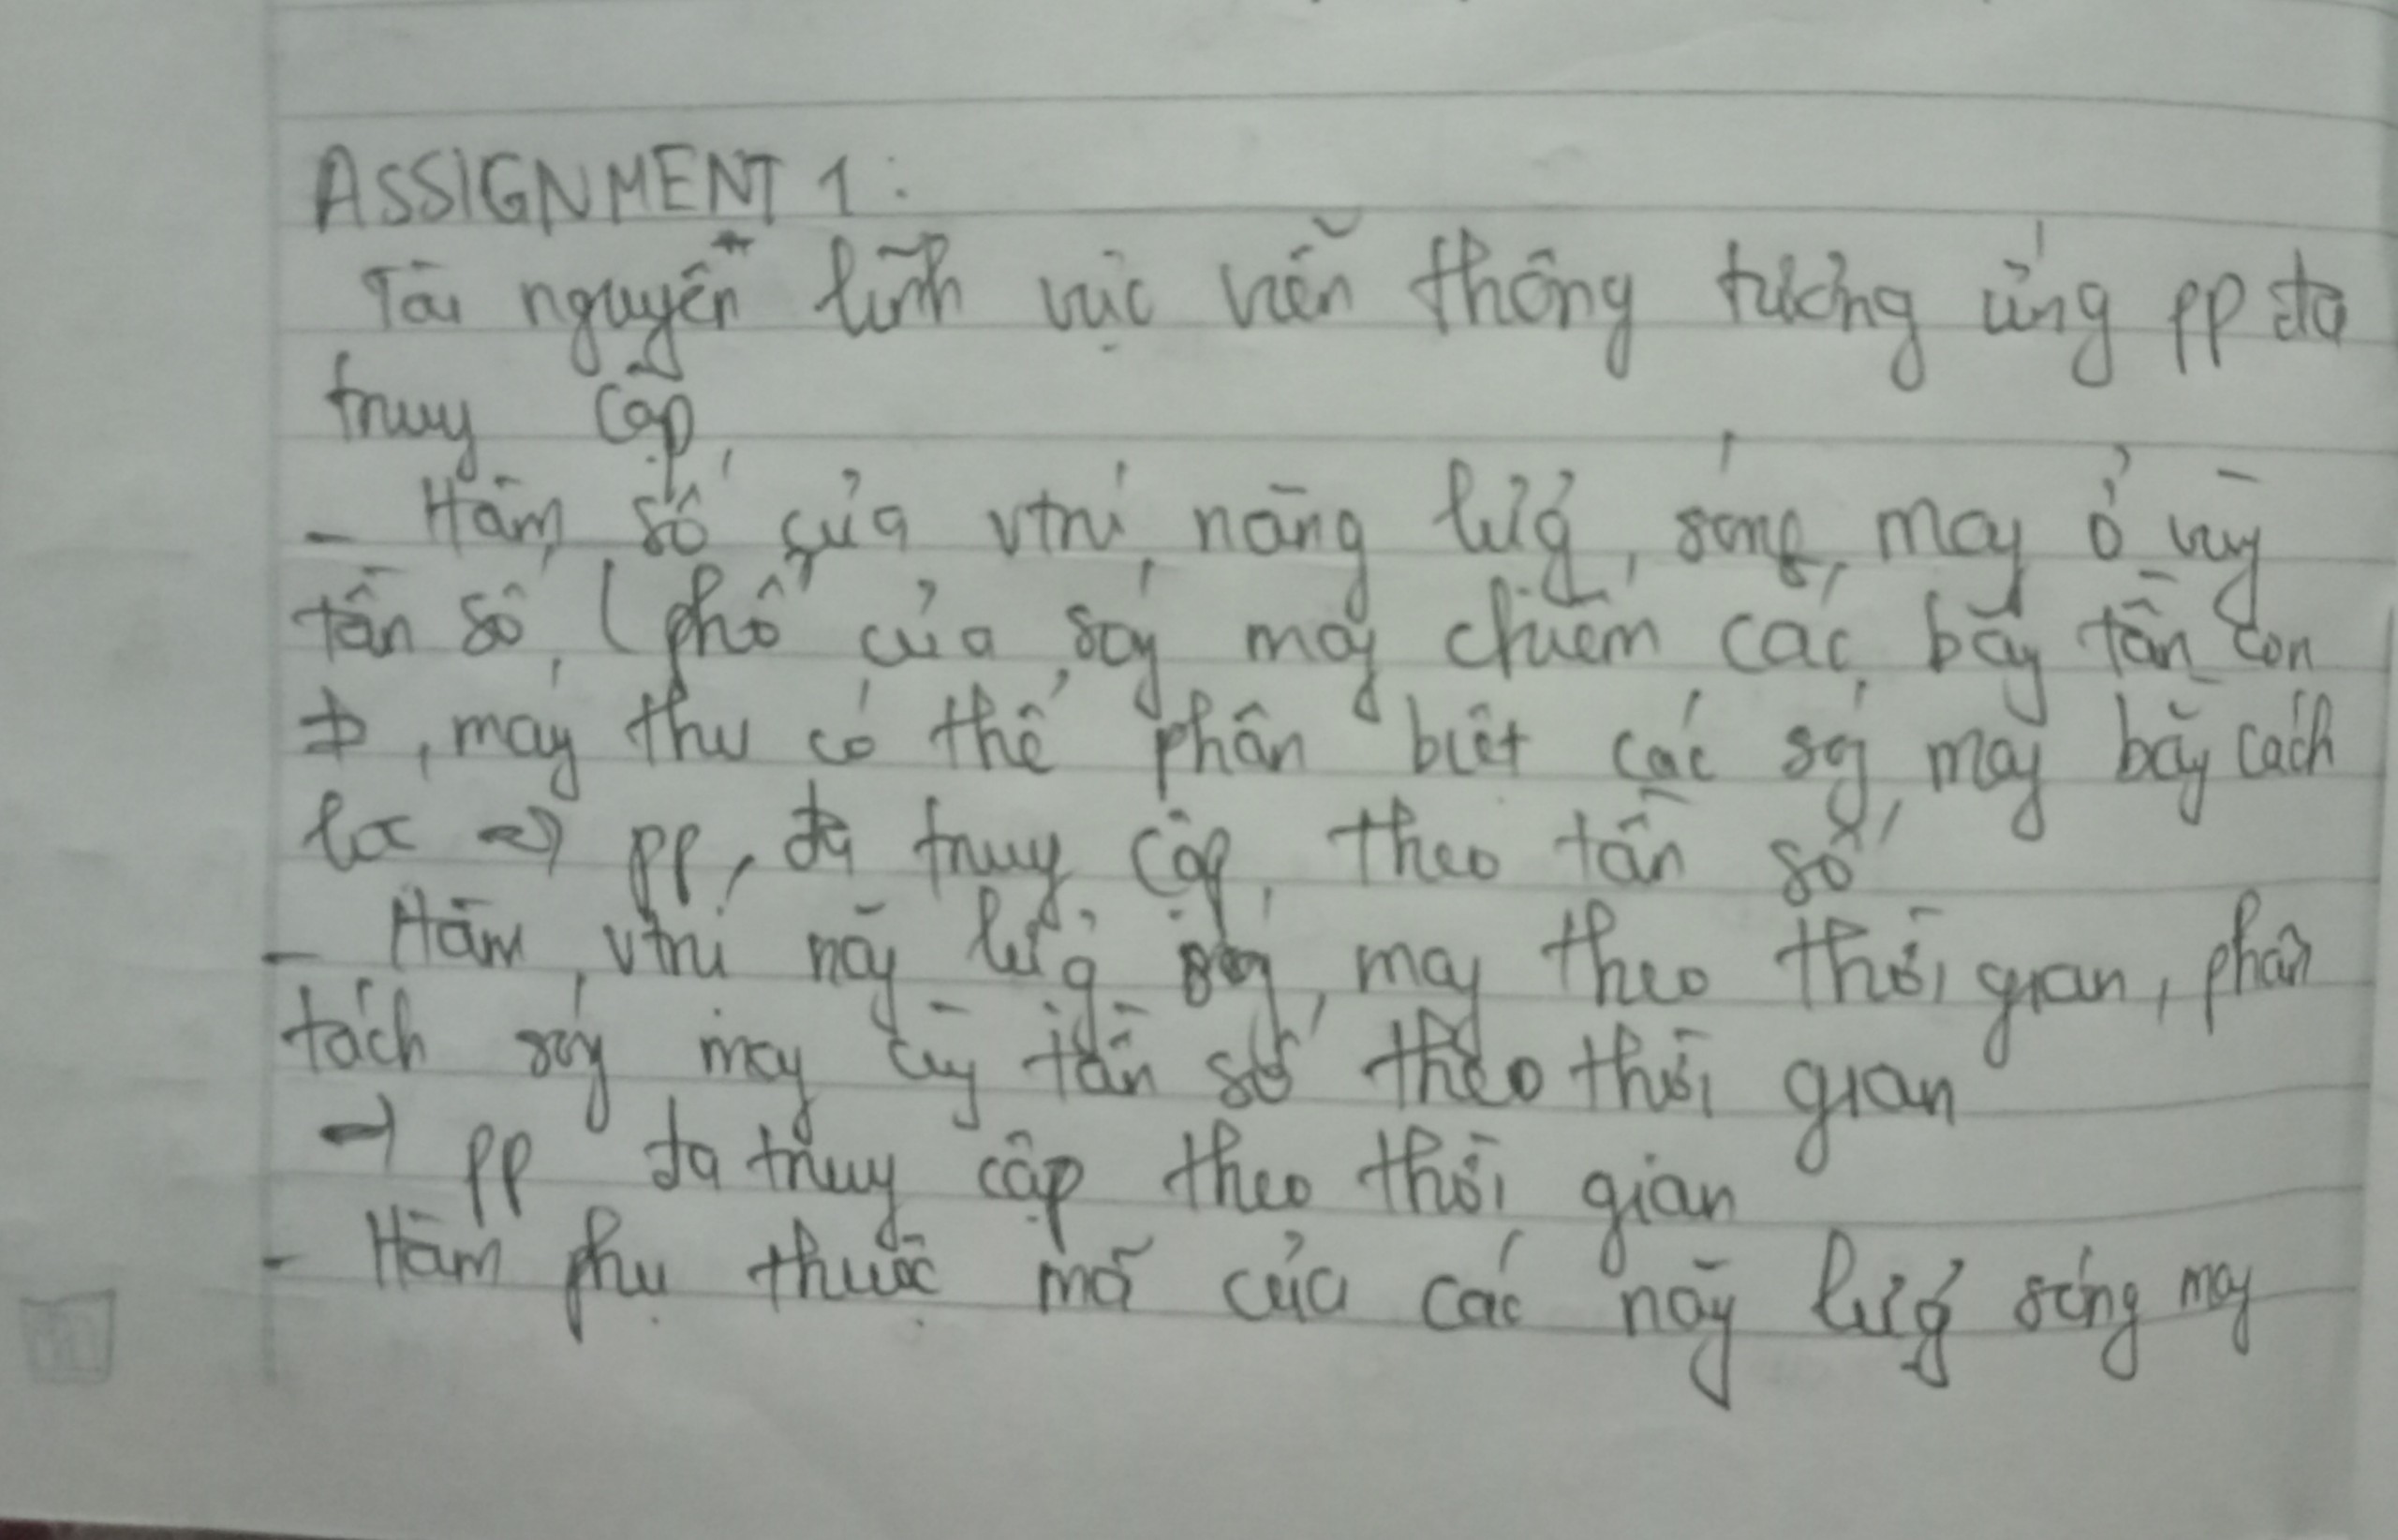 ASSIGNMENT 1:
Tài nguyên lĩnh vực viễn thông tương ứng pp đa
truy cập
- Hàm số của vtrí năng lượng sóng mag ở vùg
tần số (phổ của sóg mag chiếm các băg tần con
≠, máy thu có thể phân biệt các sóg mag bằg cách
lọc → pp đa truy cập theo tần số
- Hàm vtrí năg lượg sóg mag theo thời gian, phân
tách sóg mag cùg tần số theo thời gian
→ pp đa truy cập theo thời gian
- Hàm phụ thuộc mã của các năg lượg sóng mag